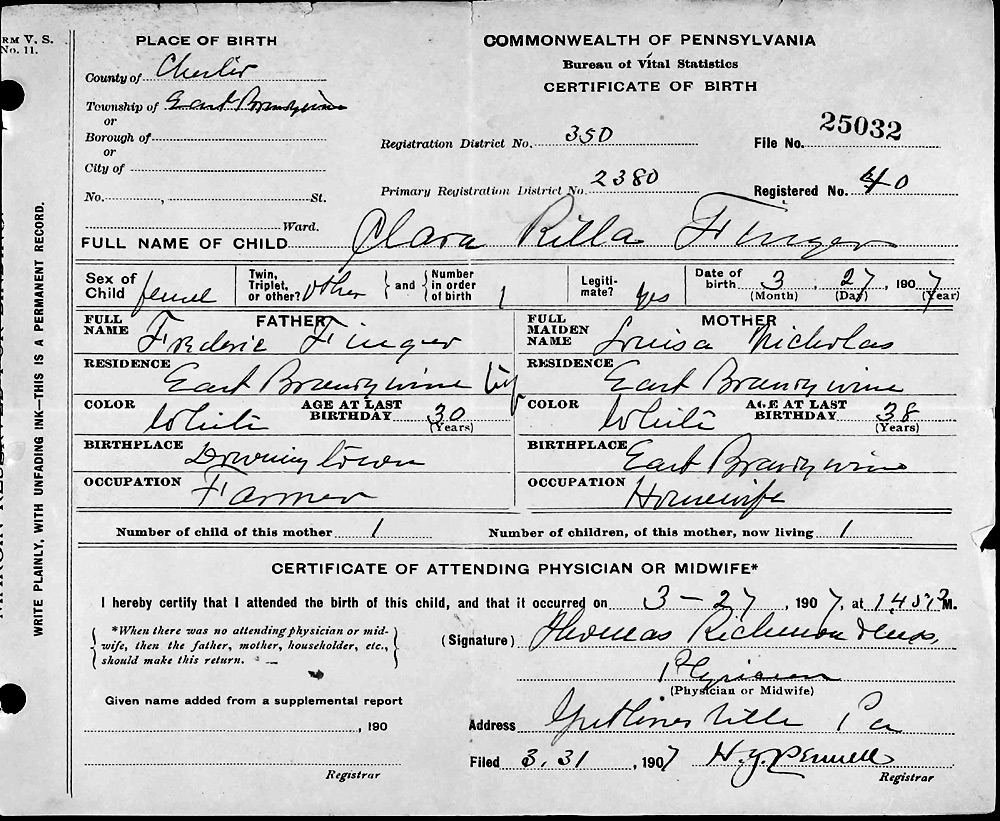 RM V. S.
No. 11.
PLACE OF BIRTH
County of Chester
Township of East Brandywine
or
Borough of
or
City of
No. , St.
Ward.
COMMONWEALTH OF PENNSYLVANIA
Bureau of Vital Statistics
CERTIFICATE OF BIRTH
Registration District No. 350
File No. 25032
Primary Registration District No. 2380
Registered No. 40
FULL NAME OF CHILD Clara Rilla Finger
Sex of Child female Twin, Triplet, or other? other and Number in order of birth 1 Legitimate? Yes Date of birth 3 27, 1907
(Month) (Day) (Year)
FATHER
FULL NAME Frederic Finger
RESIDENCE East Brandywine
COLOR White AGE AT LAST BIRTHDAY 30
(Years)
BIRTHPLACE Downingtown
OCCUPATION Farmer
MOTHER
FULL MAIDEN NAME Louisa Nicholas
RESIDENCE East Brandywine
COLOR White AGE AT LAST BIRTHDAY 38
(Years)
BIRTHPLACE East Brandywine
OCCUPATION Housewife
Number of child of this mother 1 Number of children, of this mother, now living 1
CERTIFICATE OF ATTENDING PHYSICIAN OR MIDWIFE*
I hereby certify that I attended the birth of this child, and that it occurred on 3-27, 1907, at M.
*When there was no attending physician or mid-
wife, then the father, mother, householder, etc.,
should make this return.
(Signature) Thomas
Physician
(Physician or Midwife)
Given name added from a supplemental report
, 190
Registrar
Address Guthriesville Pa
Filed 3.31, 1907 H.Y. Pennell
Registrar
WRITE PLAINLY, WITH UNFADING INK—THIS IS A PERMANENT RECORD.